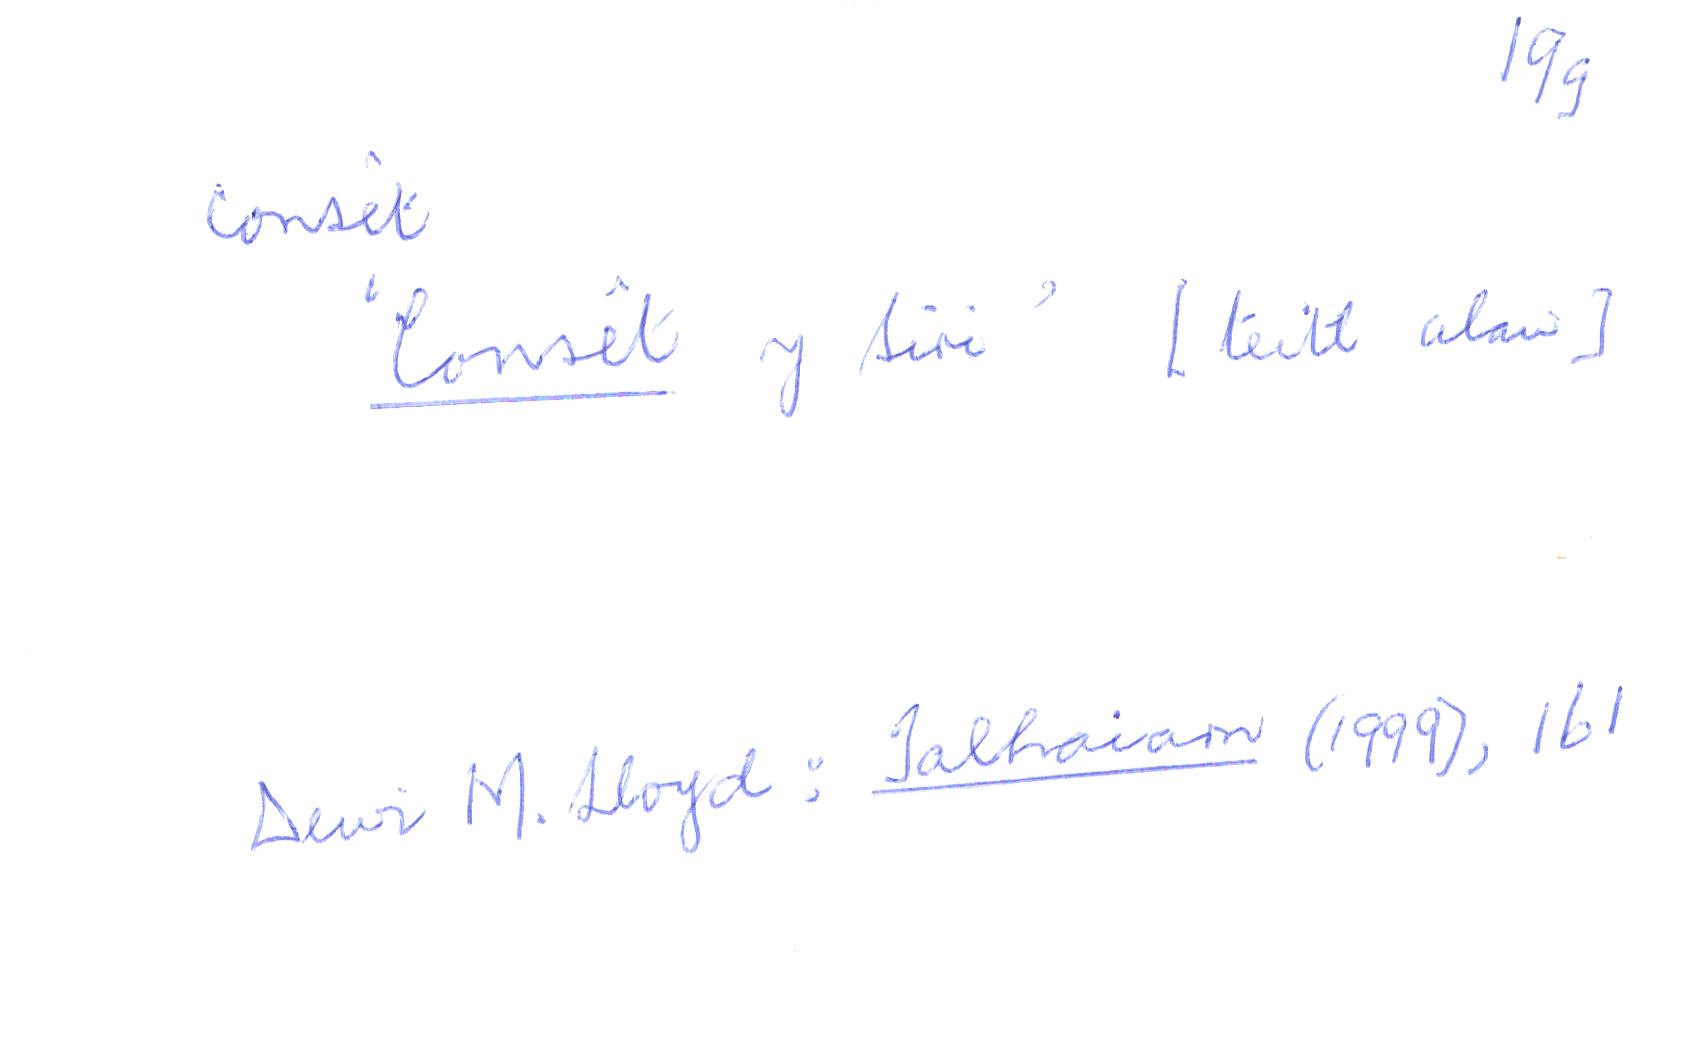 19g
consêt
'Consêt y Siri' [teitl alaw]
Dewi M. Lloyd: Talhaiarn (1999), 161